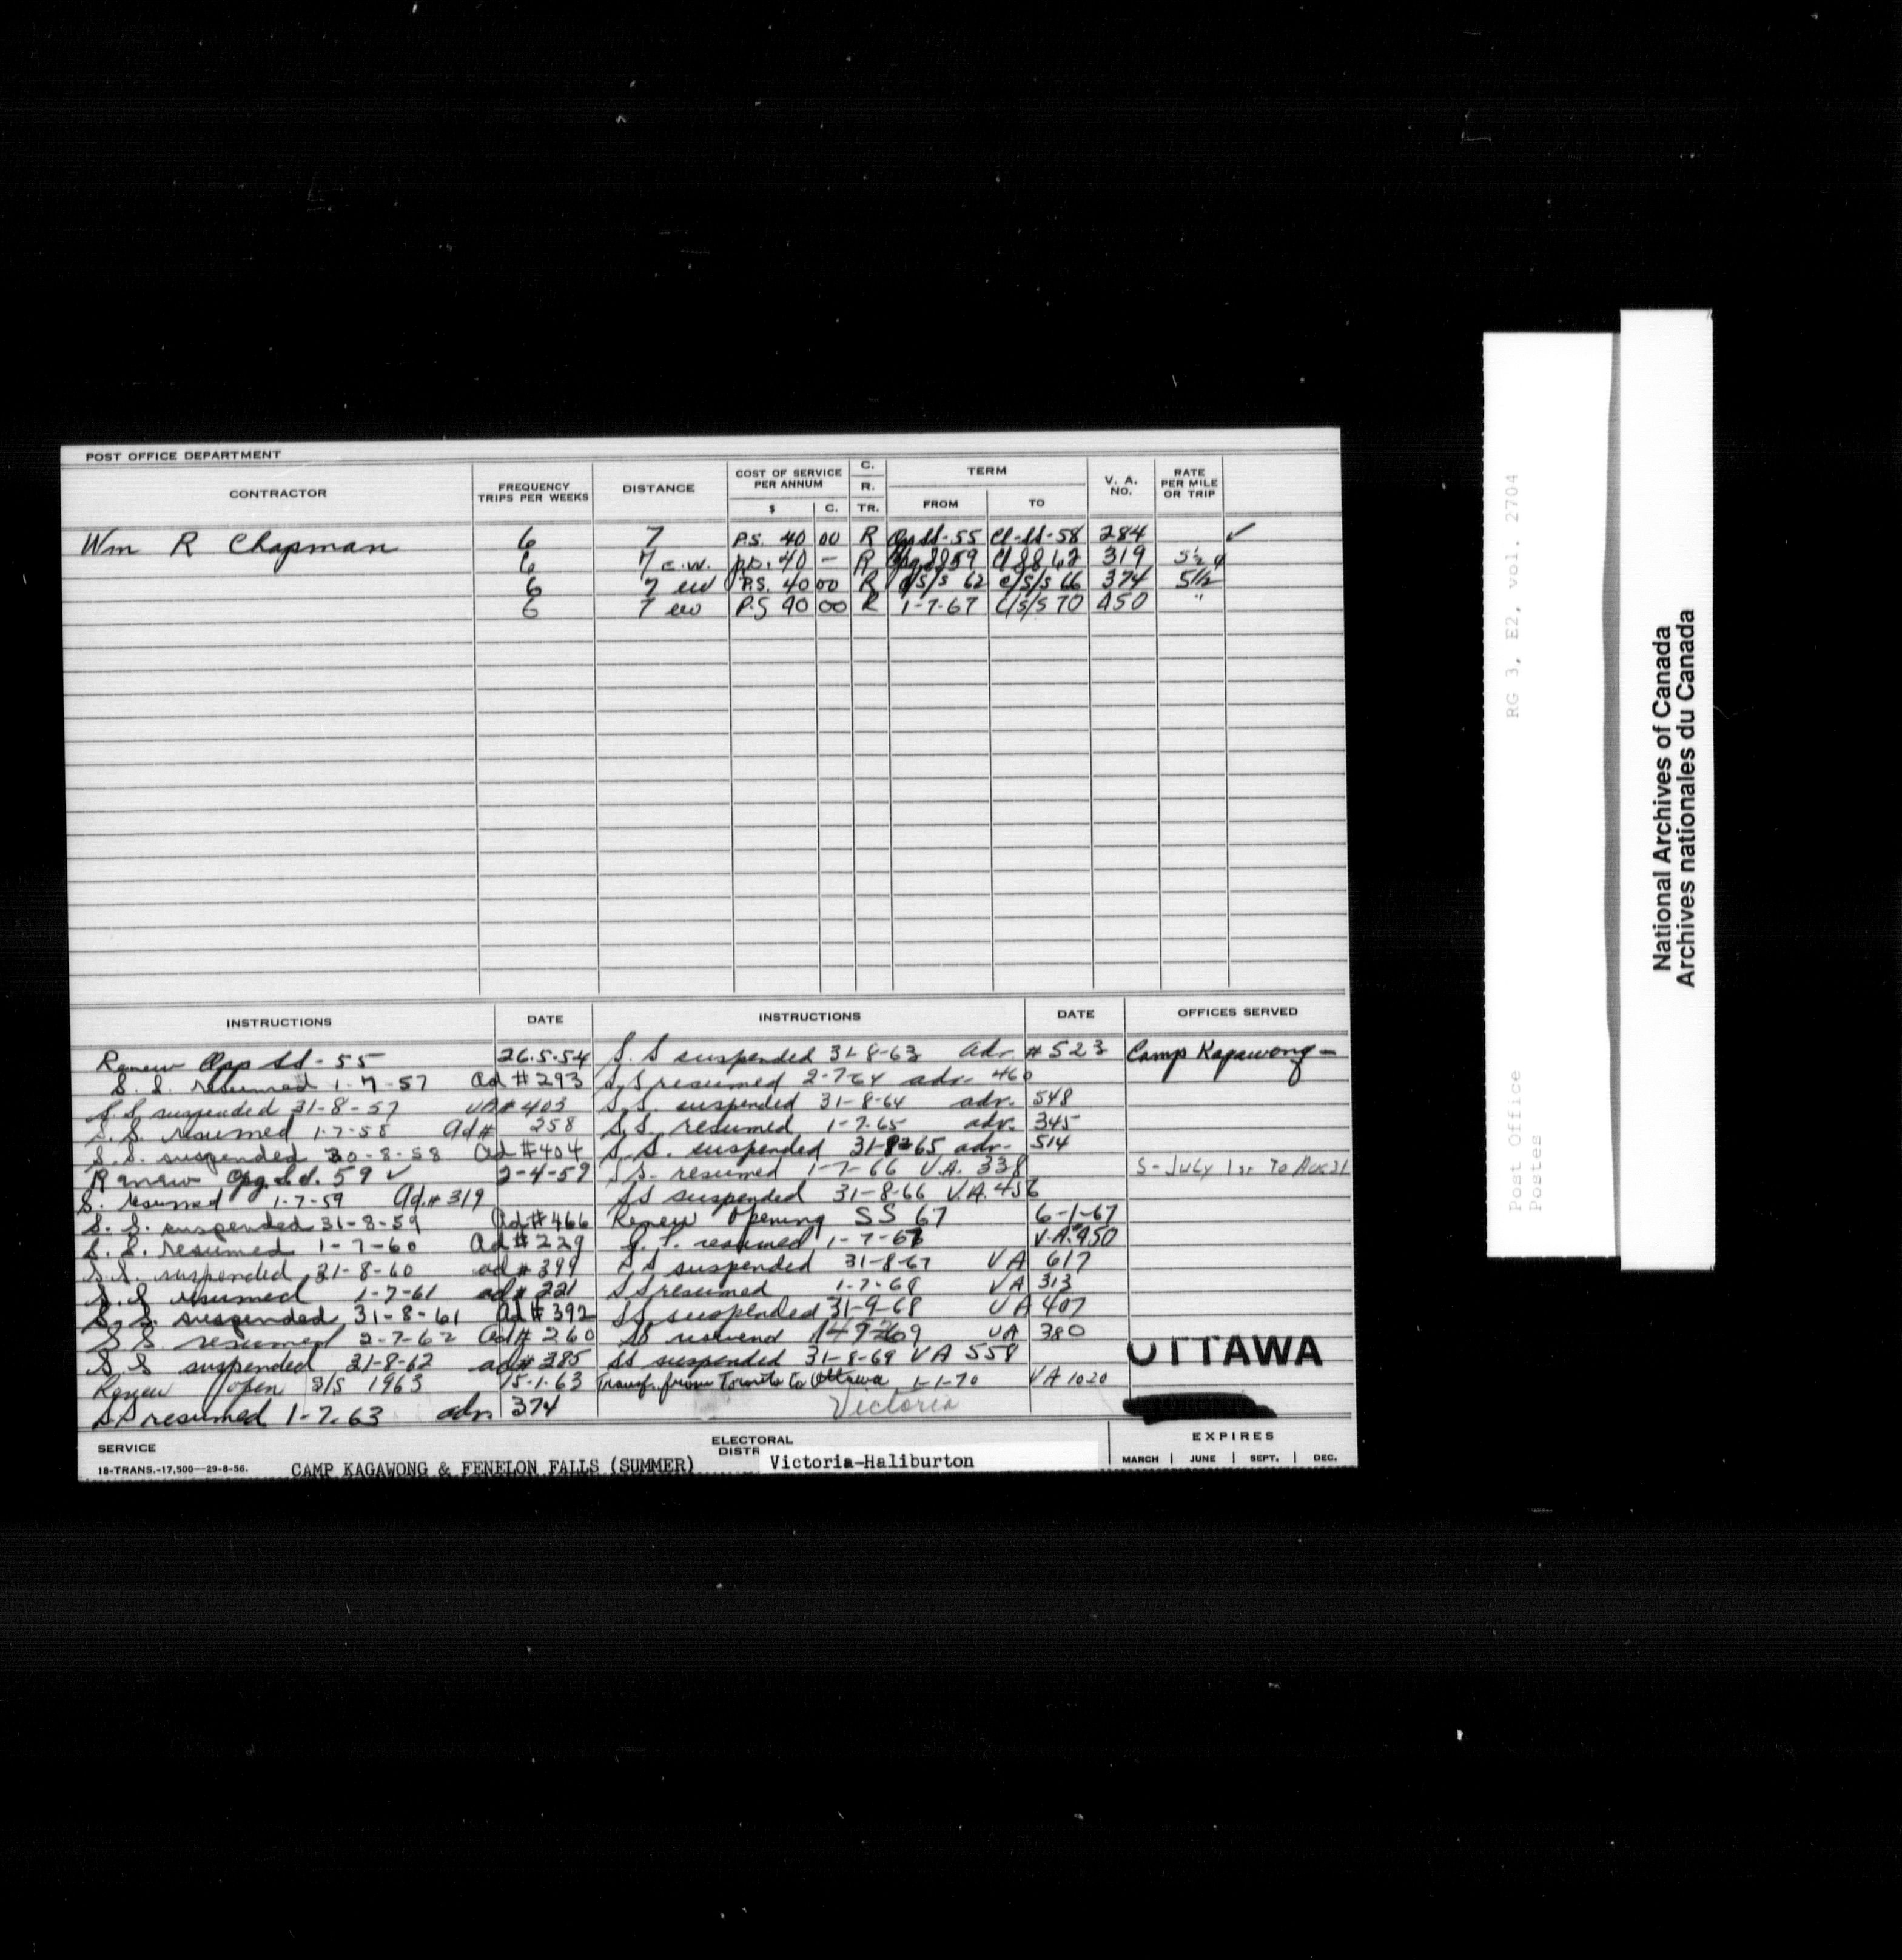 POST OFFICE DEPARTMENT
CONTRACTOR FREQUENCY TRIPS PER WEEKS DISTANCE COST OF SERVICE PER ANNUM $ C. C. R. TR. TERM FROM TO V. A. NO. RATE PER MILE OR TRIP
Wm R Chapman 6 7 P.S. 40 00 R Op SS-55 Cl-SS-58 284 ✓
6 7 e.w. p.s. 40 — R Opg SS 59 Cl SS 62 319 5½ ¢
6 7 ew P.S. 40 00 R o/S/s 62 c/s/s 66 374 5½
6 7 ew P.S 40 00 R 1-7-67 C/S/S 70 450 "
INSTRUCTIONS DATE INSTRUCTIONS DATE OFFICES SERVED
Renew Opg SS-55 26.5.54 S. S suspended 31-8-63 adv. #523 Camp Kagawong -
S. S. resumed 1-7-57 Ad #293 S.S resumed 2-7-64 adv. 460
S.S. suspended 31-8-57 VA# 403 S.S. suspended 31-8-64 adv. 548
S.S. resumed 1-7-58 Ad# 258 S.S. resumed 1-7-65 adv. 345
S.S. suspended 30-8-58 Ad #404 S.S. suspended 31-8-65 adv. 514
Renew Opg S.S. 59 ✓ 2-4-59 S.S. resumed 1-7-66 V.A. 338 S-July 1st To Aug 31
S. resumed 1-7-59 Ad.#319 SS suspended 31-8-66 V.A. 456
S. S. suspended 31-8-59 Ad#466 Renew Opening SS 67 6-1-67
S. S. resumed 1-7-60 Ad#229 S. S. resumed 1-7-67 V.A.#450
S.S. suspended 31-8-60 ad #399 S.S suspended 31-8-67 VA 617
S.S resumed 1-7-61 ad# 221 SS resumed 1-7-68 VA 313
S. S. suspended 31-8-61 Ad#392 SS suspended 31-9-68 VA 407
S S. resumed 2-7-62 Ad# 260 SS VA 380
S.S suspended 31-8-62 ad#385 SS suspended 31-8-69 VA 558 OTTAWA
Renew open S/S 1963 15-1-63 Transf. from Toronto to Ottawa 1-1-70 VA 1020
S.S resumed 1-7-63 adv. 374 Victoria
SERVICE ELECTORAL DISTR EXPIRES
18-TRANS.-17,500—29-8-56. CAMP KAGAWONG & FENELON FALLS (SUMMER) Victoria-Haliburton MARCH | JUNE | SEPT. | DEC.
Post Office RG 3, E2, vol. 2704
Postes
National Archives of Canada
Archives nationales du Canada